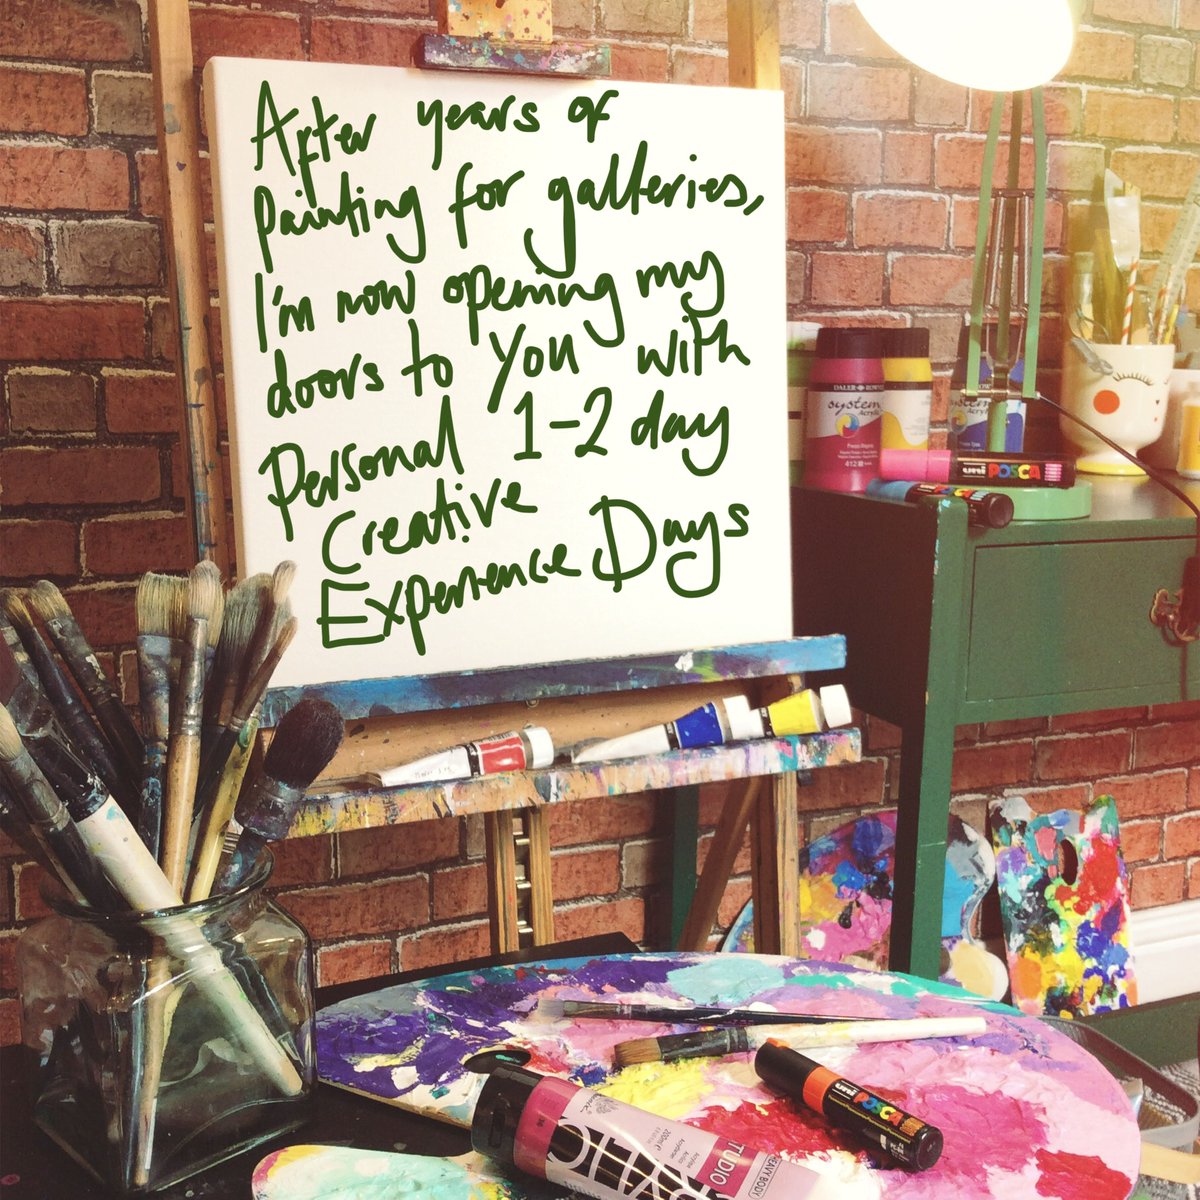 After years of
painting for galleries,
I'm now opening my
doors to you with
Personal 1-2 day
Creative
Experience Days
DALER ROWNEY
system
Acrylic
412
uni POSCA
uni POSCA
STUDIO
HEAVY BODY
200ml e